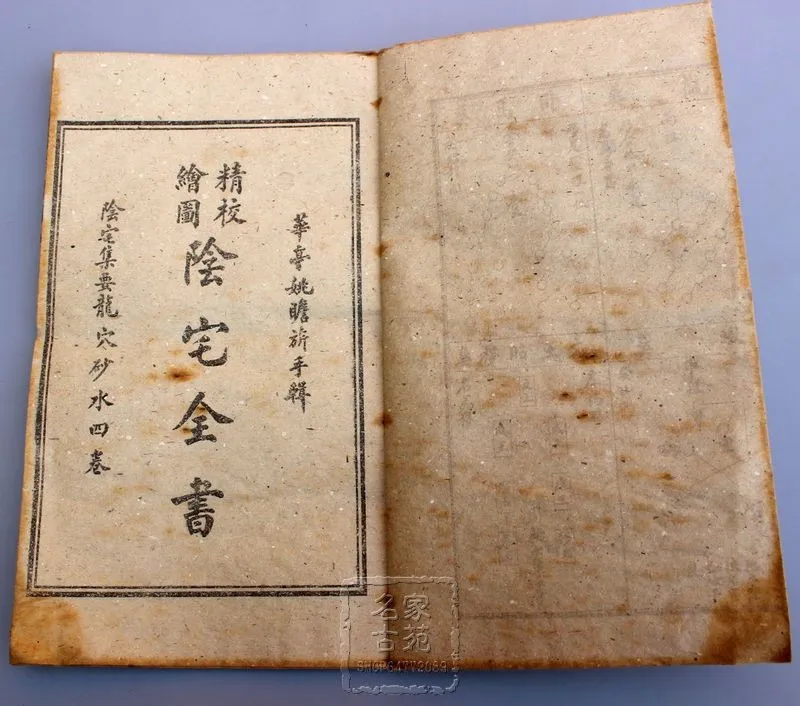 華亭姚瞻旂手輯
精校
繪圖
陰宅全書
陰宅集要龍穴砂水四卷
名家
古苑
SHOP64772089